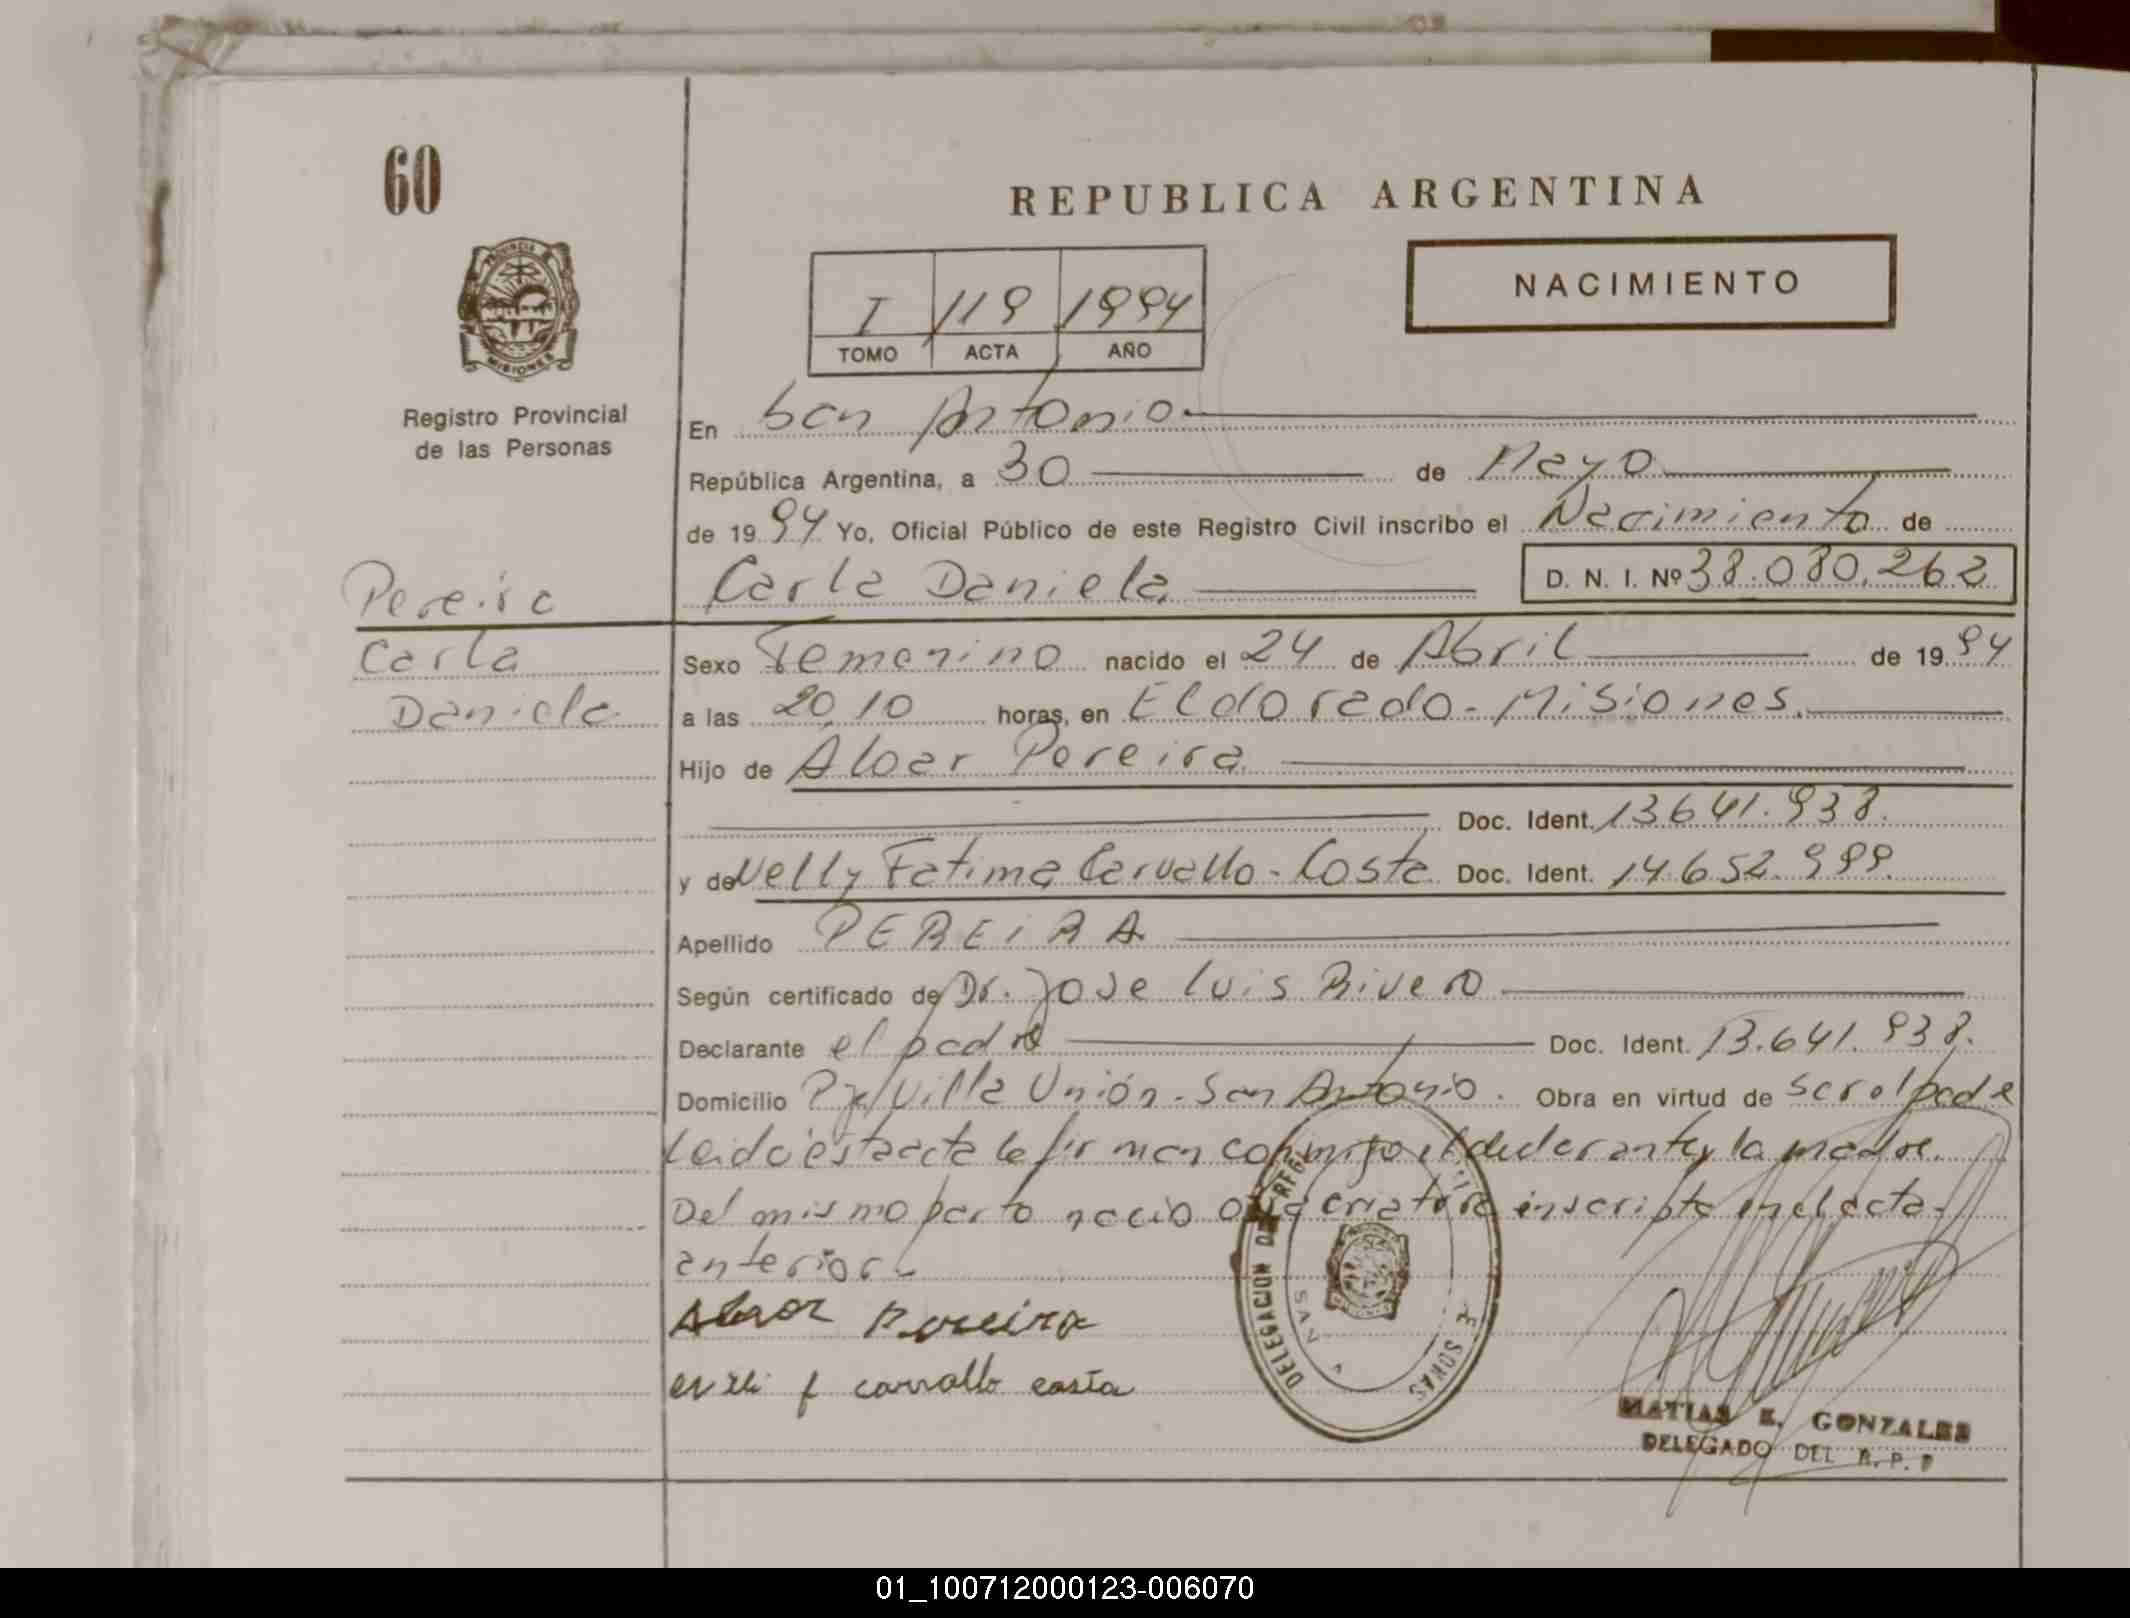 60
REPUBLICA ARGENTINA
PROVINCIA DE
MISIONES
NACIMIENTO
I 119 1994
TOMO ACTA AÑO
Registro Provincial
de las Personas
En San Antonio
República Argentina, a 30 de Mayo
de 1994 Yo, Oficial Público de este Registro Civil inscribo el Nacimiento de
Pereira
Carla Daniela D. N. I. Nº 38.080.262
Carla
Daniela
Sexo Femenino nacido el 24 de Abril de 1994
a las 20,10 horas, en Eldorado - Misiones.
Hijo de Aloar Pereira
Doc. Ident. 13.641.938.
y de Nelly Fatima Carvallo - Costa Doc. Ident. 14.652.999.
Apellido PEREiRA
Según certificado de Dr. Jose Luis Rivero
Declarante el padre Doc. Ident. 13.641.938.
Domicilio Pje Villa Unión - San Antonio. Obra en virtud de ser el padre
Leido esta acta la firman conmigo el declarante y la madre.
Del mismo parto nacio otra criatura inscripta en el acta
anterior
Pereira
f carvallo costa
DELEGACION DE REGI
SAN
SONAS
MATIAS E. GONZALES
DELEGADO DEL R. P. P
01_100712000123-006070